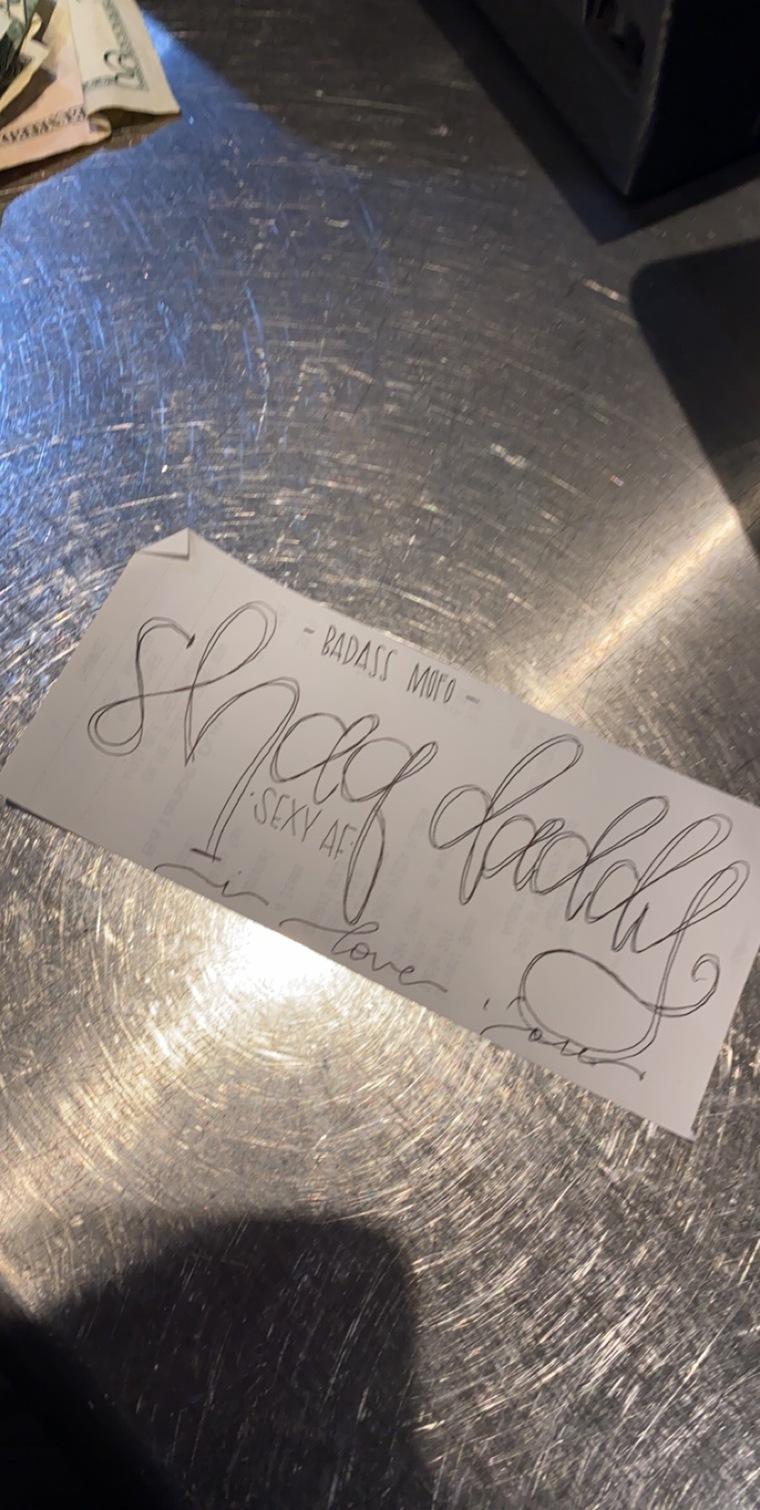 - BADASS MOFO -
shaq daddy
·SEXY AF·
i love you